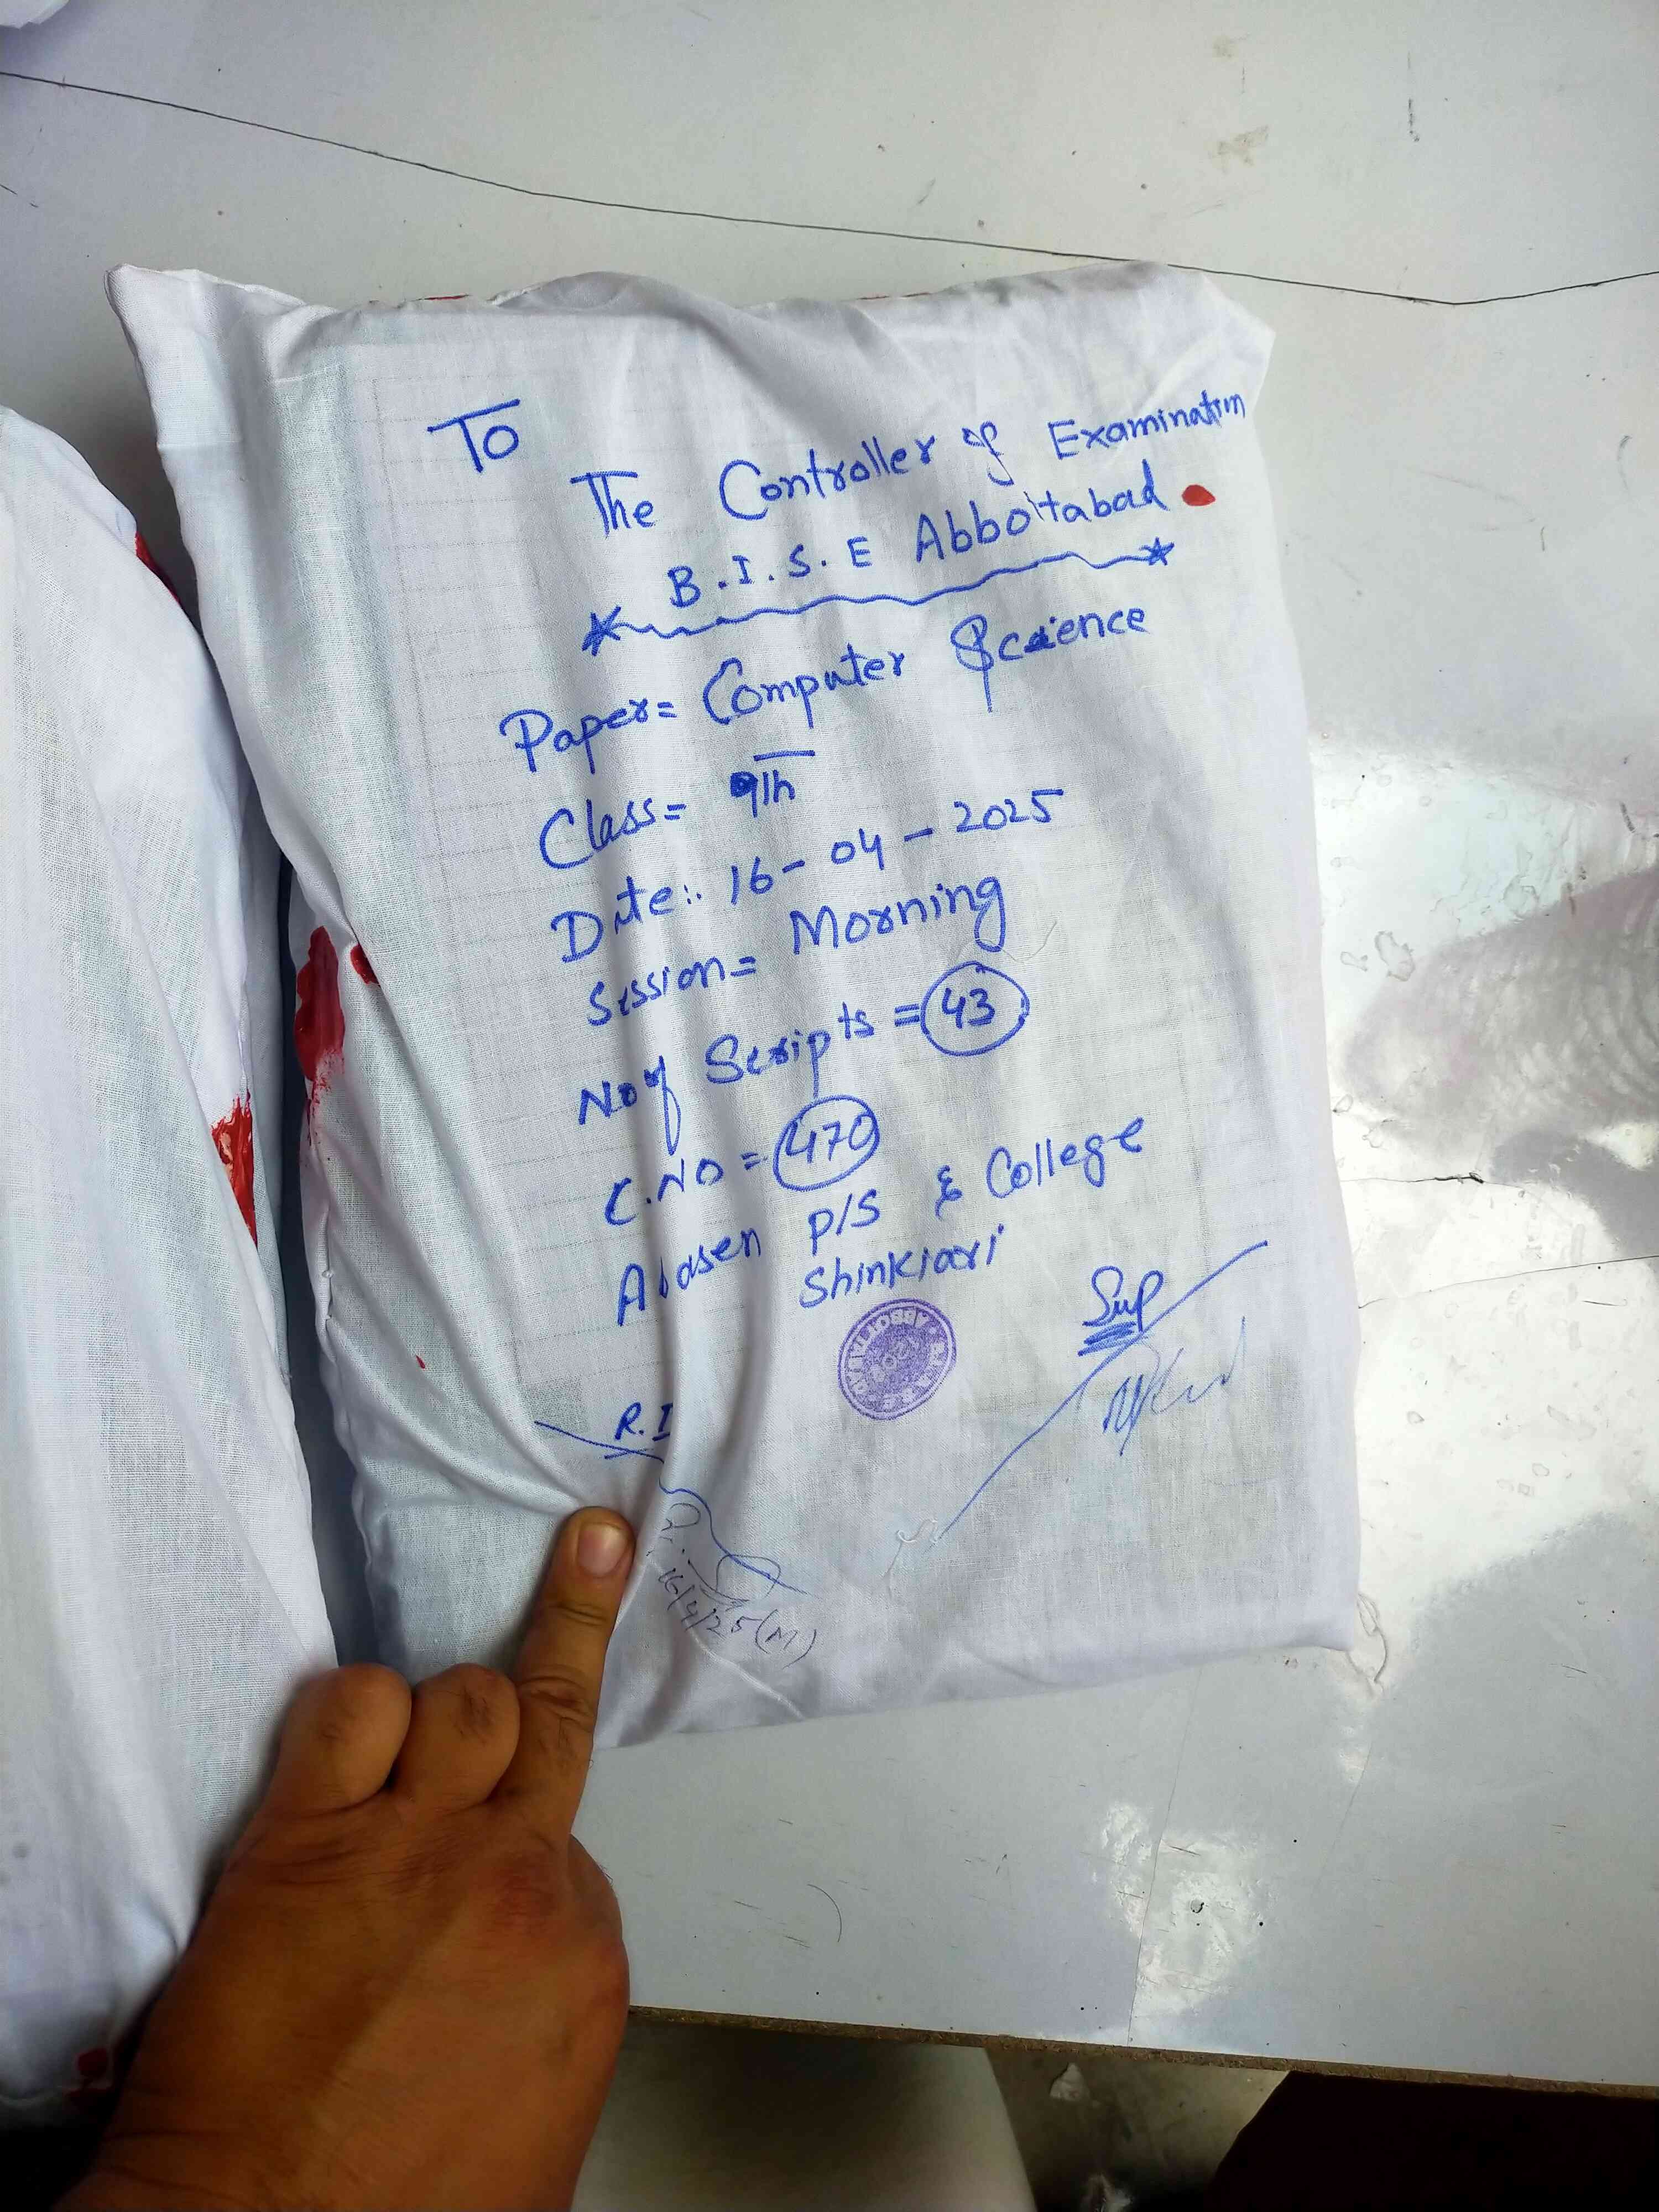 To
The Controller of Examination
B.I.S.E Abbottabad
Paper= Computer Science
Class= 9th
Date:. 16-04-2025
Session= Morning
No of Scripts = 43
C.NO = 470
Abasen P/S & College
Shinkiari
Sup
R.I
16/4/25 (M)